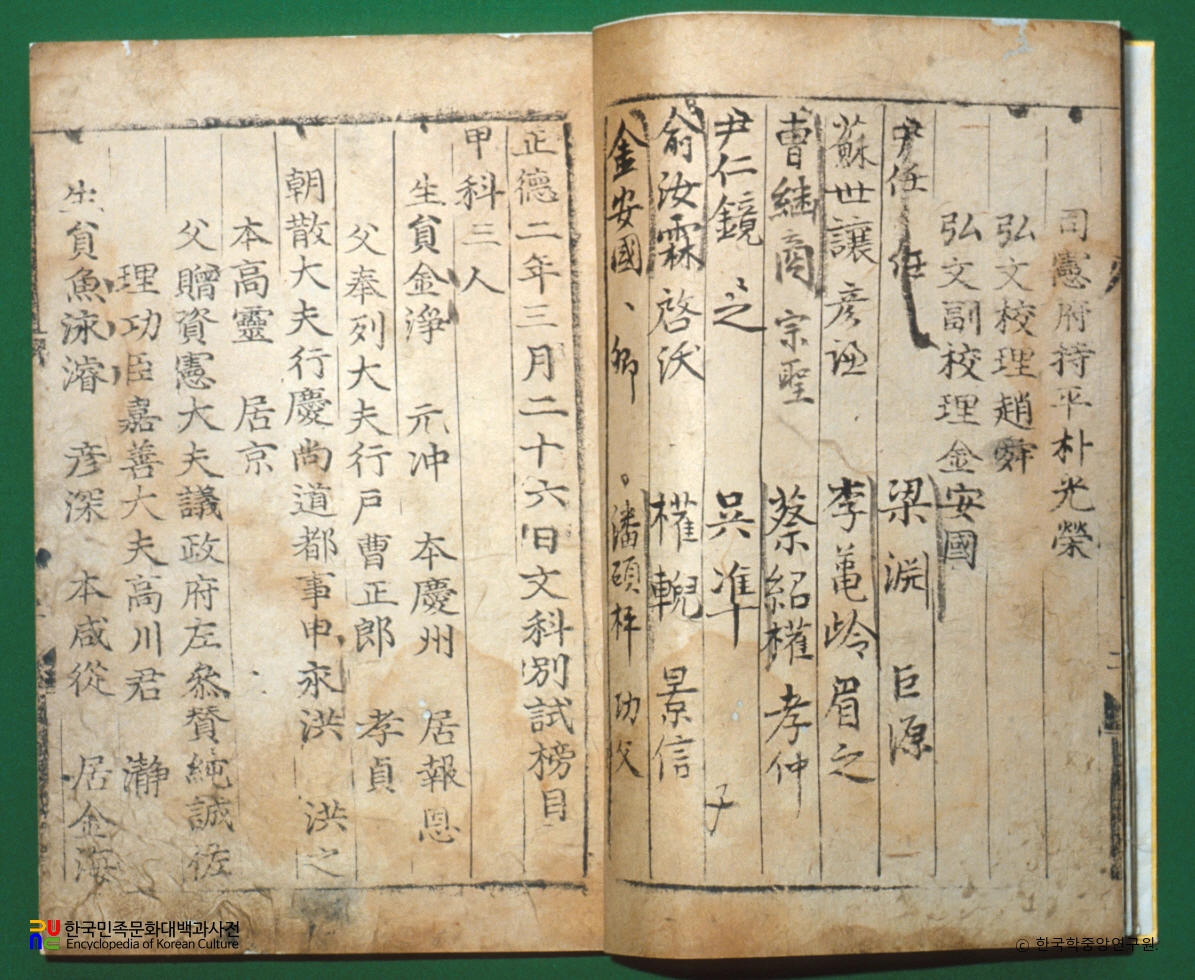 司憲府持平朴光榮
弘文校理趙舜
弘文副校理金安國
尹任 任 梁淵 巨源
蘇世讓 彦謙 李龜齡 眉之
曹繼商 宗聖 蔡紹權 孝仲
尹仁鏡 之 吳準 子
俞汝霖 啓沃 權輗 景信
金安國 卿 潘碩枰 功父
正德二年三月二十六日文科別試榜目
甲科三人
生員金淨 元冲 本慶州 居報恩
父奉列大夫行戶曹正郎 孝貞
朝散大夫行慶尚道都事申永洪 洪之
本高靈 居京
父贈資憲大夫議政府左叅贊純誠佐
理功臣嘉善大夫高川君 瀞
生員魚泳濬 彦深 本咸從 居金海
한국민족문화대백과사전
Encyclopedia of Korean Culture
© 한국학중앙연구원.